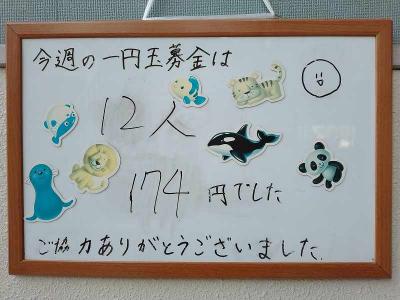 今週の一円玉募金は
12人
174円でした
ご協力ありがとうございました.